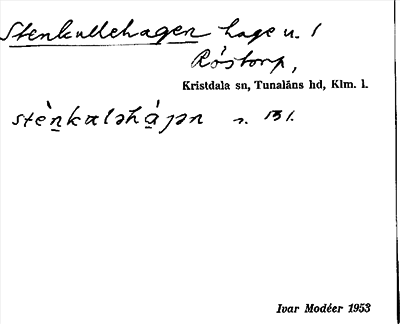 Stenkullehagen hage u. 1
Röstorp,
Kristdala sn, Tunaläns hd, Klm. l.
stènkαləhágən s. 131.
Ivar Modéer 1953